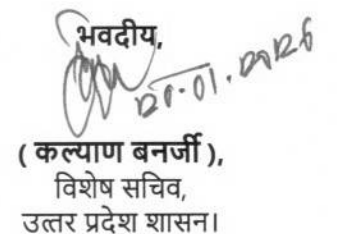 भवदीय,
20.01.2026
( कल्याण बनर्जी ),
विशेष सचिव,
उत्तर प्रदेश शासन।